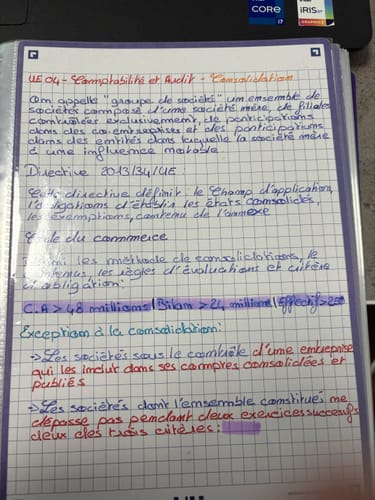 CORE
i7
iRIS xe
GRAPHICS
UE 04 - Comptabilité et Audit - Consolidation
On appelle "groupe de société" un ensemble de
sociétés composé d'une société mère, de filiales
contrôlées exclusivement, de participations
dans des co-entreprises et des participations
dans des entités dans laquelle la société mère
a une influence notable.
Directive 2013/34/UE :
Cette directive définit : le Champ d'application,
l'obligations d'établir les états consolidés,
les exemptions, contenu de l'annexe
Code du commerce
les méthode de consolidations, le
contenus, les règles d'évaluations et critère
d'obligation :
C.A > 48 millions / Bilan > 24 millions / Effectif > 250
Exception à la consolidation :
-> Les sociétés sous le contrôle d'une entreprise
qui les inclut dans ses comptes consolidées et
publiés
-> Les sociétés dont l'ensemble constitués ne
dépasse pas pendant deux exercices successifs
deux des trois critères :